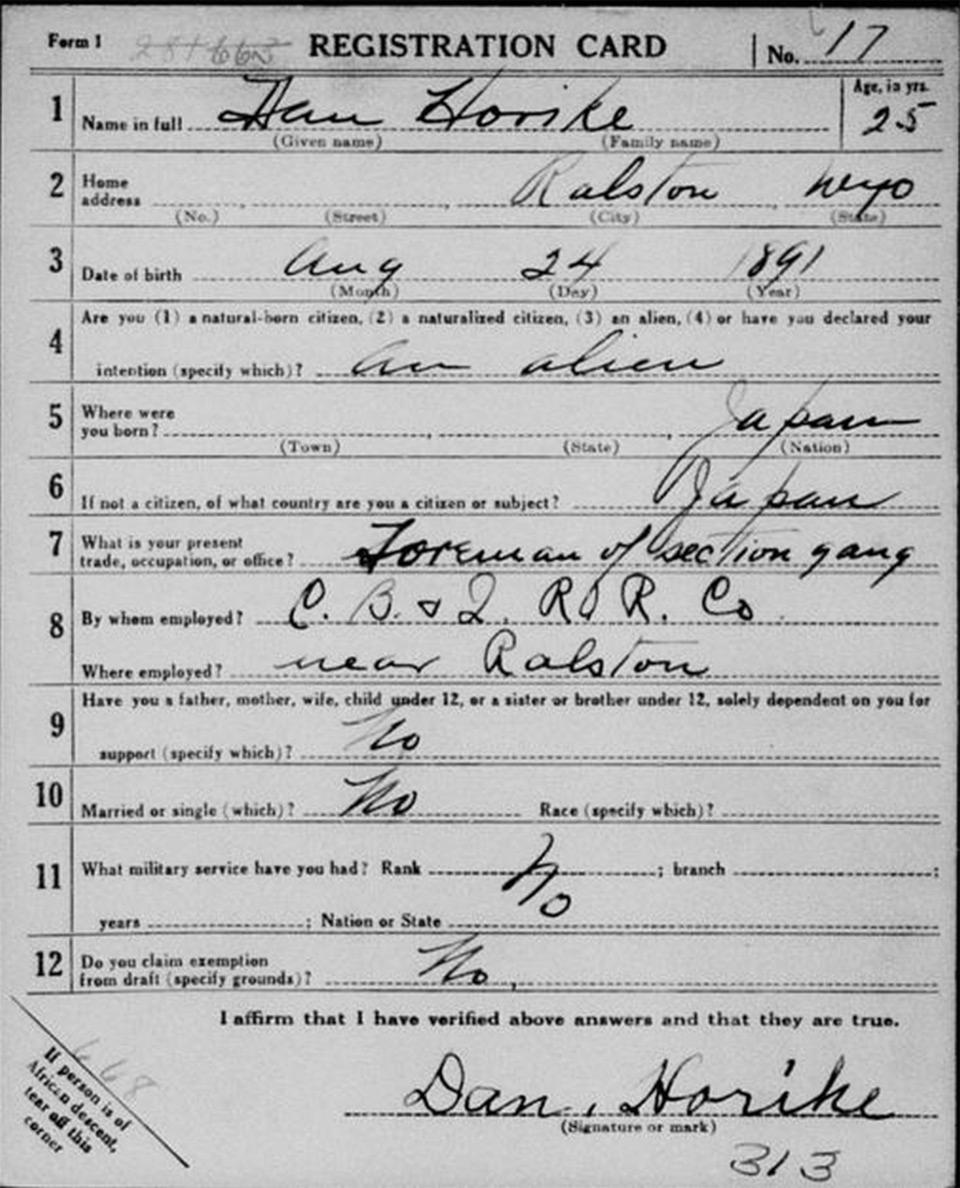 Form 1 REGISTRATION CARD No. 17
1 Name in full Dan Horike Age, in yrs. 25
(Given name) (Family name)
2 Home address Ralston Wyo
(No.) (Street) (City) (State)
3 Date of birth Aug 24 1891
(Month) (Day) (Year)
4 Are you (1) a natural-born citizen, (2) a naturalized citizen, (3) an alien, (4) or have you declared your
intention (specify which)? an alien
5 Where were you born? Japan
(Town) (State) (Nation)
6 If not a citizen, of what country are you a citizen or subject? Japan
7 What is your present trade, occupation, or office? Foreman of section gang
8 By whom employed? C. B. & Q. R. R. Co
Where employed? near Ralston
9 Have you a father, mother, wife, child under 12, or a sister or brother under 12, solely dependent on you for
support (specify which)? No
10 Married or single (which)? No Race (specify which)?
11 What military service have you had? Rank No ; branch ;
years ; Nation or State
12 Do you claim exemption from draft (specify grounds)? No
I affirm that I have verified above answers and that they are true.
If person is of
African descent,
tear off this
corner
668
Dan. Horike
(Signature or mark)
313